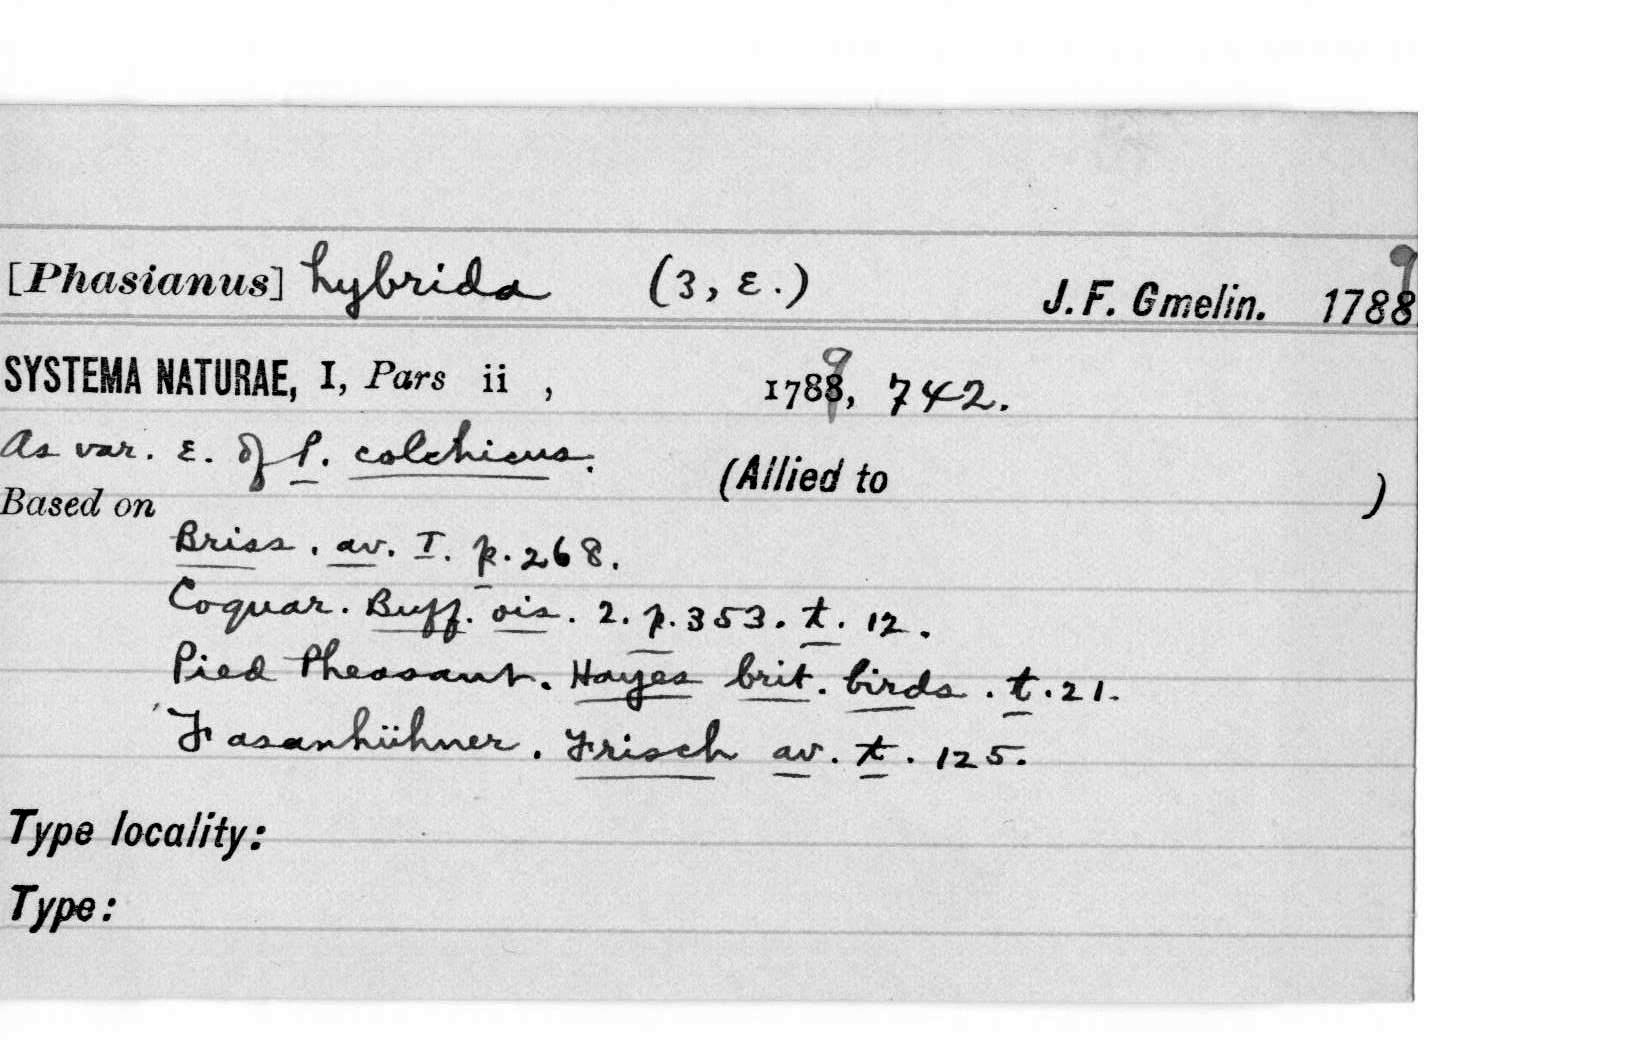 [Phasianus] hybrida (3, ε.) J. F. Gmelin. 1789
SYSTEMA NATURAE, I, Pars ii , 1789, 742.
As var. ε. of P. colchicus. (Allied to )
Based on
Briss. av. I. p. 268.
Coquar. Buff. ois. 2. p. 353. t. 12.
Pied Pheasant. Hayes brit. birds. t. 21.
Fasanhühner. Frisch av. t. 125.
Type locality:
Type: